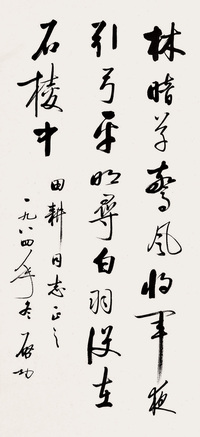 林暗草驚风将軍夜
引弓平明尋白羽没在
石棱中
田耕同志正之
一九八四年冬 啟功